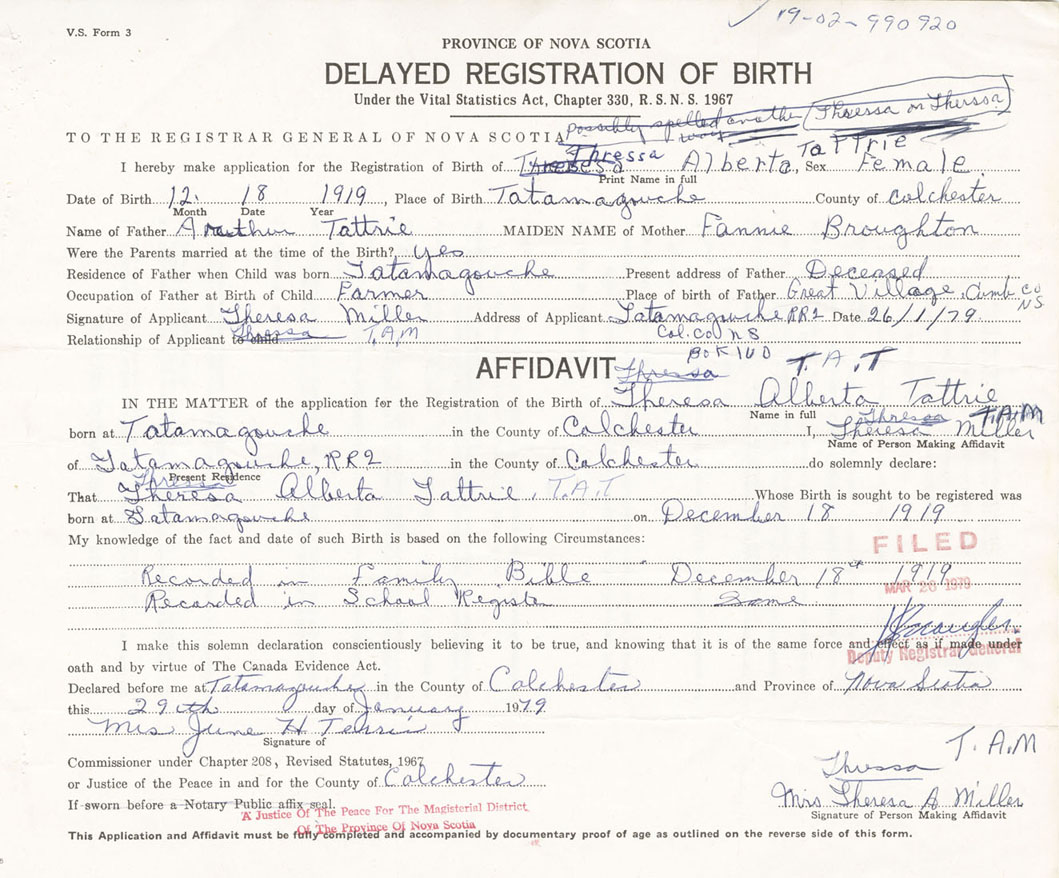 V.S. Form 3
19-02-990920
PROVINCE OF NOVA SCOTIA
DELAYED REGISTRATION OF BIRTH
Under the Vital Statistics Act, Chapter 330, R.S.N.S. 1967
possibly spelled another way Thressa or Therssa
TO THE REGISTRAR GENERAL OF NOVA SCOTIA
I hereby make application for the Registration of Birth of Thressa Alberta Tattrie, Sex Female
Print Name in full
Date of Birth 12 18 1919, Place of Birth Tatamagouche County of Colchester
Month Date Year
Name of Father Arthur Tattrie MAIDEN NAME of Mother Fannie Broughton
Were the Parents married at the time of the Birth? Yes
Residence of Father when Child was born Tatamagouche Present address of Father Deceased
Occupation of Father at Birth of Child Farmer Place of birth of Father Great Village, Cumb Co NS
Signature of Applicant Theresa Miller Address of Applicant Tatamagouche RR2 Date 26/1/79
Relationship of Applicant to child Thressa T.A.M Col. Co NS
Box 100
AFFIDAVIT Thressa T.A.T
IN THE MATTER of the application for the Registration of the Birth of Theresa Alberta Tattrie
Name in full Thressa T.A.M
born at Tatamagouche in the County of Colchester I, Theresa Miller
Name of Person Making Affidavit
of Tatamagouche, RR2 in the County of Colchester do solemnly declare:
Thressa Present Residence
That Theresa Alberta Tattrie T.A.T Whose Birth is sought to be registered was
born at Tatamagouche on December 18 1919
My knowledge of the fact and date of such Birth is based on the following Circumstances:
FILED
Recorded in Family Bible December 18th 1919
MAR 28 1979
Recorded in School Register Same
I make this solemn declaration conscientiously believing it to be true, and knowing that it is of the same force and effect as if made under
Deputy Registrar General
oath and by virtue of The Canada Evidence Act.
Declared before me at Tatamagouche in the County of Colchester and Province of Nova Scotia
this 29th day of January 1979
Mrs June H
Signature of
T.A.M
Commissioner under Chapter 208, Revised Statutes, 1967
Thressa
or Justice of the Peace in and for the County of Colchester
Mrs Theresa A Miller
If sworn before a Notary Public affix seal.
Signature of Person Making Affidavit
A Justice Of The Peace For The Magisterial District
Of The Province Of Nova Scotia
This Application and Affidavit must be fully completed and accompanied by documentary proof of age as outlined on the reverse side of this form.